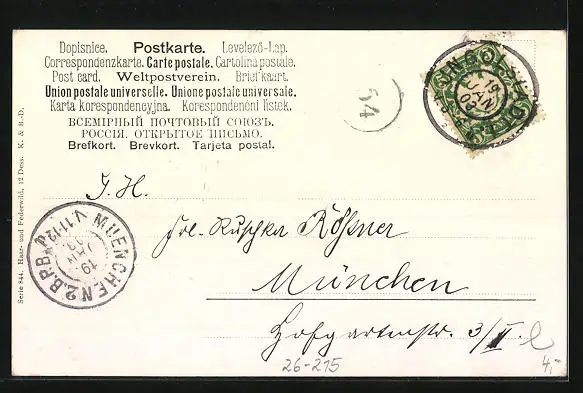 Dopisnice. Postkarte. Levelező-Lap.
Correspondenzkarte. Carte postale. Cartolina postale.
Post card. Weltpostverein. Briefkaart.
Union postale universelle. Unione postale universale.
Karta korespondencyjna. Korespondenční lístek.
ВСЕМІРНЫЙ ПОЧТОВЫЙ СОЮЗЪ.
РОССІЯ. ОТКРЫТОЕ ПИСЬМО.
Brefkort. Brevkort. Tarjeta postal.
54
INGOLSTADT
19
JAN
Serie 844. Haar- und Federwild, 12 Dess. K. & B.-D.
MUENCHEN 2.B.P.B.
V.11-12
19
JAN
München
Hofgartenstr. 3/II
26-215
4,-